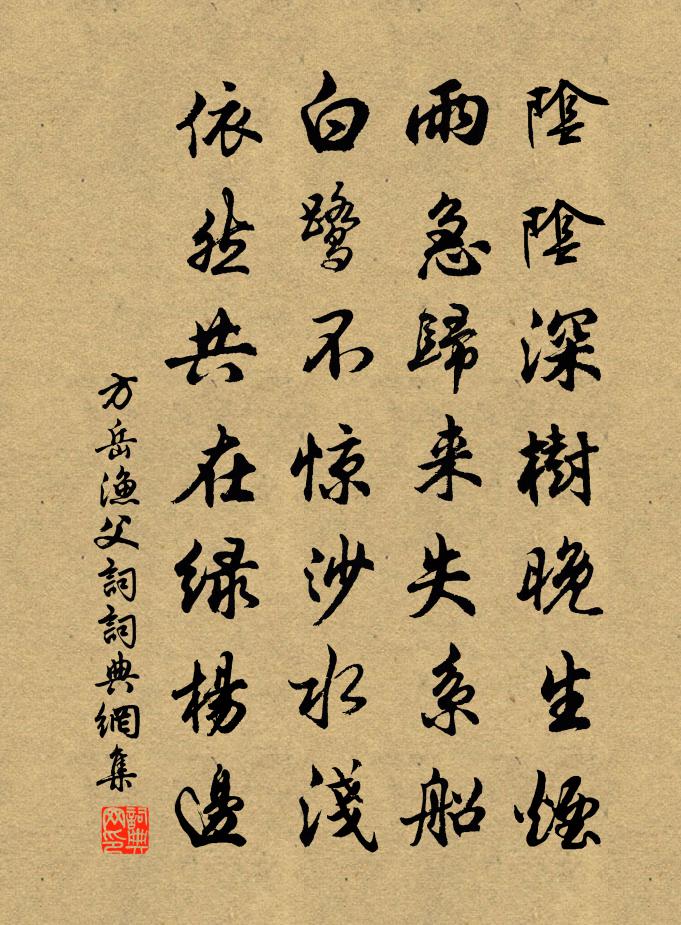 陰陰深樹晚生煙
雨急歸来失系船
白鹭不惊沙水淺
依然共在绿楊邊
方岳漁父詞詞典網集
詞典网印